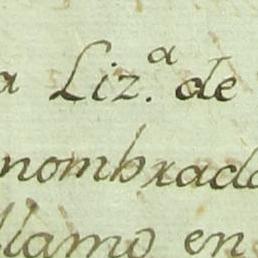 a Liz.ª de
nombrada
llamo en